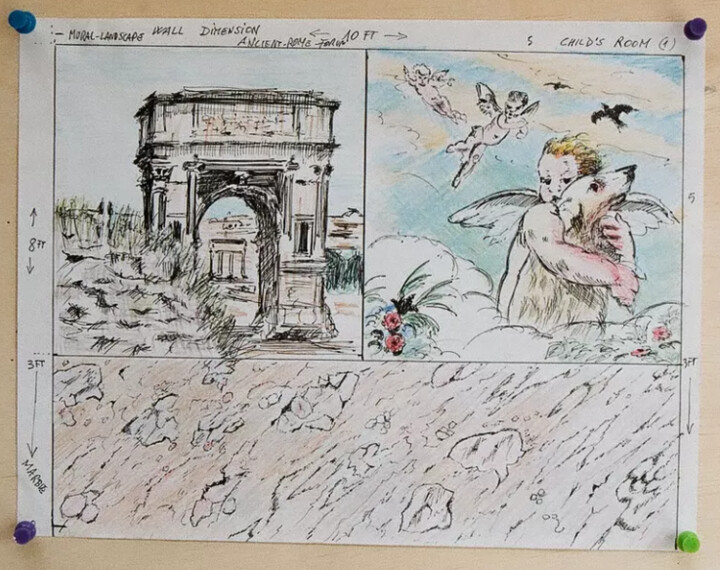 MURAL-LANDSCAPE WALL DIMENSION ← 10 FT →
ANCIENT-ROME FORUM
5 CHILD'S ROOM (1)
8 FT
5
3 FT
3 FT
MARBLE